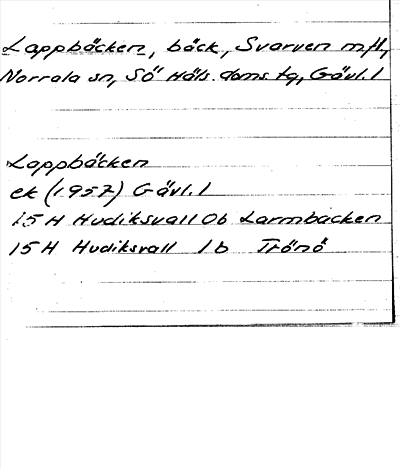 Lappbäcken, bäck, Svarven m fl,
Norrala sn, Sö Häls. doms. tg, Gävl. l
Lappbäcken
ek (1957) Gävl. l
15 H Hudiksvall 0b Larmbacken
15 H Hudiksvall 1b Trönö